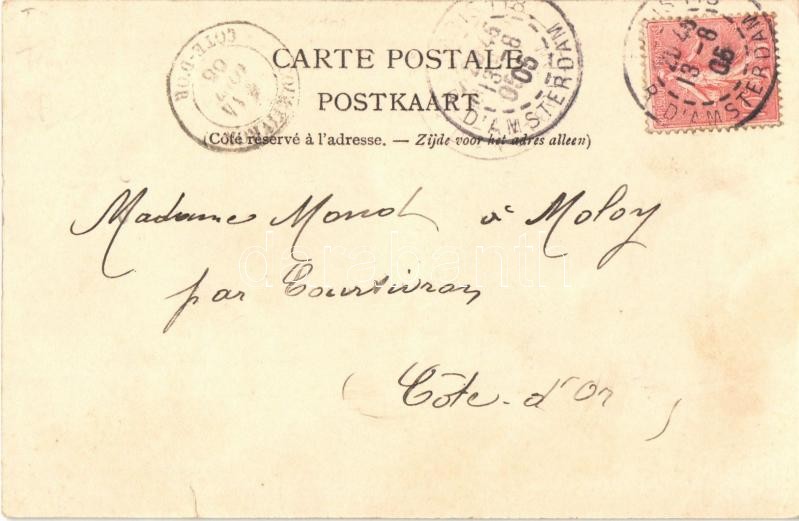 CARTE POSTALE
POSTKAART
(Côté réservé à l'adresse. — Zijde voor het adres alleen)
CÔTE-D'OR
R. D'AMSTERDAM
R. D'AMSTERDAM
Madame Monot à Moloy
par Courtivron
(Côte-d'Or)
darabanth